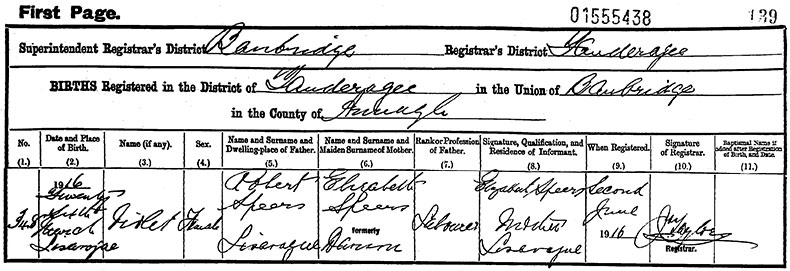 First Page. 01555438 139
Superintendent Registrar's District Banbridge Registrar's District Tanderagee
BIRTHS Registered in the District of Tanderagee in the Union of Banbridge
in the County of Armagh
No. Date and Place of Birth. Name (if any). Sex. Name and Surname and Dwelling-place of Father. Name and Surname and Maiden Surname of Mother. Rank or Profession of Father. Signature, Qualification, and Residence of Informant. When Registered. Signature of Registrar. Baptismal Name if added after Registration of Birth, and Date.
(1.) (2.) (3.) (4.) (5.) (6.) (7.) (8.) (9.) (10.) (11.)
1916 Robert Elizabeth Elizabeth Speers Second
Twenty Speers Speers June
Violet Female formerly Labourer Mother 1916
March
Lisavague Lisavague Lisavague Registrar.